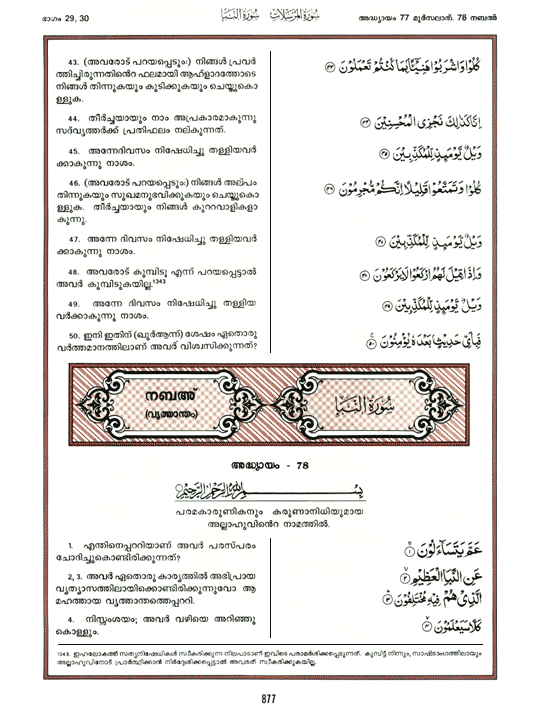 ഭാഗം 29, 30
سُورَةُ المُرْسَلَات سُورَةُ النَّبَإِ
അദ്ധ്യായം 77 മുർസലാത്. 78 നബഅ്
43. (അവരോട് പറയപ്പെടും:) നിങ്ങൾ പ്രവർ
ത്തിച്ചിരുന്നതിൻെറ ഫലമായി ആഹ്ളാദത്തോടെ
നിങ്ങൾ തിന്നുകയും കുടിക്കുകയും ചെയ്തുകൊ
ള്ളുക.
كُلُوا۟ وَٱشْرَبُوا۟ هَنِيٓـًٔۢا بِمَا كُنتُمْ تَعْمَلُونَ ﴿٤٣﴾
44. തീർച്ചയായും നാം അപ്രകാരമാകുന്നു
സദ്‌വൃത്തർക്ക് പ്രതിഫലം നല്കുന്നത്.
إِنَّا كَذَٰلِكَ نَجْزِى ٱلْمُحْسِنِينَ ﴿٤٤﴾
45. അന്നേദിവസം നിഷേധിച്ചു തള്ളിയവർ
ക്കാകുന്നു നാശം.
وَيْلٌ يَوْمَئِذٍ لِّلْمُكَذِّبِينَ ﴿٤٥﴾
46. (അവരോട് പറയപ്പെടും:) നിങ്ങൾ അല്പം
തിന്നുകയും സുഖമനുഭവിക്കുകയും ചെയ്തുകൊ
ള്ളുക. തീർച്ചയായും നിങ്ങൾ കുററവാളികളാ
കുന്നു.
كُلُوا۟ وَتَمَتَّعُوا۟ قَلِيلًا إِنَّكُم مُّجْرِمُونَ ﴿٤٦﴾
47. അന്നേ ദിവസം നിഷേധിച്ചു തള്ളിയവർ
ക്കാകുന്നു നാശം.
وَيْلٌ يَوْمَئِذٍ لِّلْمُكَذِّبِينَ ﴿٤٧﴾
48. അവരോട് കുമ്പിടൂ എന്ന് പറയപ്പെട്ടാൽ
അവർ കുമ്പിടുകയില്ല.1343
وَإِذَا قِيلَ لَهُمُ ٱرْكَعُوا۟ لَا يَرْكَعُونَ ﴿٤٨﴾
49. അന്നേ ദിവസം നിഷേധിച്ചു തള്ളിയ
വർക്കാകുന്നു നാശം.
وَيْلٌ يَوْمَئِذٍ لِّلْمُكَذِّبِينَ ﴿٤٩﴾
50. ഇനി ഇതിന് (ഖുർആന്ന്) ശേഷം ഏതൊരു
വർത്തമാനത്തിലാണ് അവർ വിശ്വസിക്കുന്നത്?
فَبِأَىِّ حَدِيثٍۭ بَعْدَهُۥ يُؤْمِنُونَ ﴿٥٠﴾
നബഅ്
(വൃത്താന്തം)
سُورَةُ النَّبَإِ
അദ്ധ്യായം - 78
بِسْمِ اللَّهِ الرَّحْمَٰنِ الرَّحِيمِ
പരമകാരുണികനും കരുണാനിധിയുമായ
അല്ലാഹുവിൻെറ നാമത്തിൽ.
1. എന്തിനെപ്പററിയാണ് അവർ പരസ്പരം
ചോദിച്ചുകൊണ്ടിരിക്കുന്നത്?
عَمَّ يَتَسَآءَلُونَ ﴿١﴾
2, 3. അവർ ഏതൊരു കാര്യത്തിൽ അഭിപ്രായ
വ്യത്യാസത്തിലായിക്കൊണ്ടിരിക്കുന്നുവോ ആ
മഹത്തായ വൃത്താന്തത്തെപ്പററി.
عَنِ ٱلنَّبَإِ ٱلْعَظِيمِ ﴿٢﴾
ٱلَّذِى هُمْ فِيهِ مُخْتَلِفُونَ ﴿٣﴾
4. നിസ്സംശയം; അവർ വഴിയെ അറിഞ്ഞു
കൊള്ളും.
كَلَّا سَيَعْلَمُونَ ﴿٤﴾
1343. ഇഹലോകത്ത് സത്യനിഷേധികൾ സ്വീകരിക്കുന്ന നിലപാടാണ് ഇവിടെ പരാമർശിക്കപ്പെടുന്നത്. കുമ്പിട്ട് നിന്നും, സാഷ്ടാംഗത്തിലായും
അല്ലാഹുവിനോട് പ്രാർത്ഥിക്കാൻ നിർദ്ദേശിക്കപ്പെട്ടാൽ അവരത് സ്വീകരിക്കുകയില്ല.
877